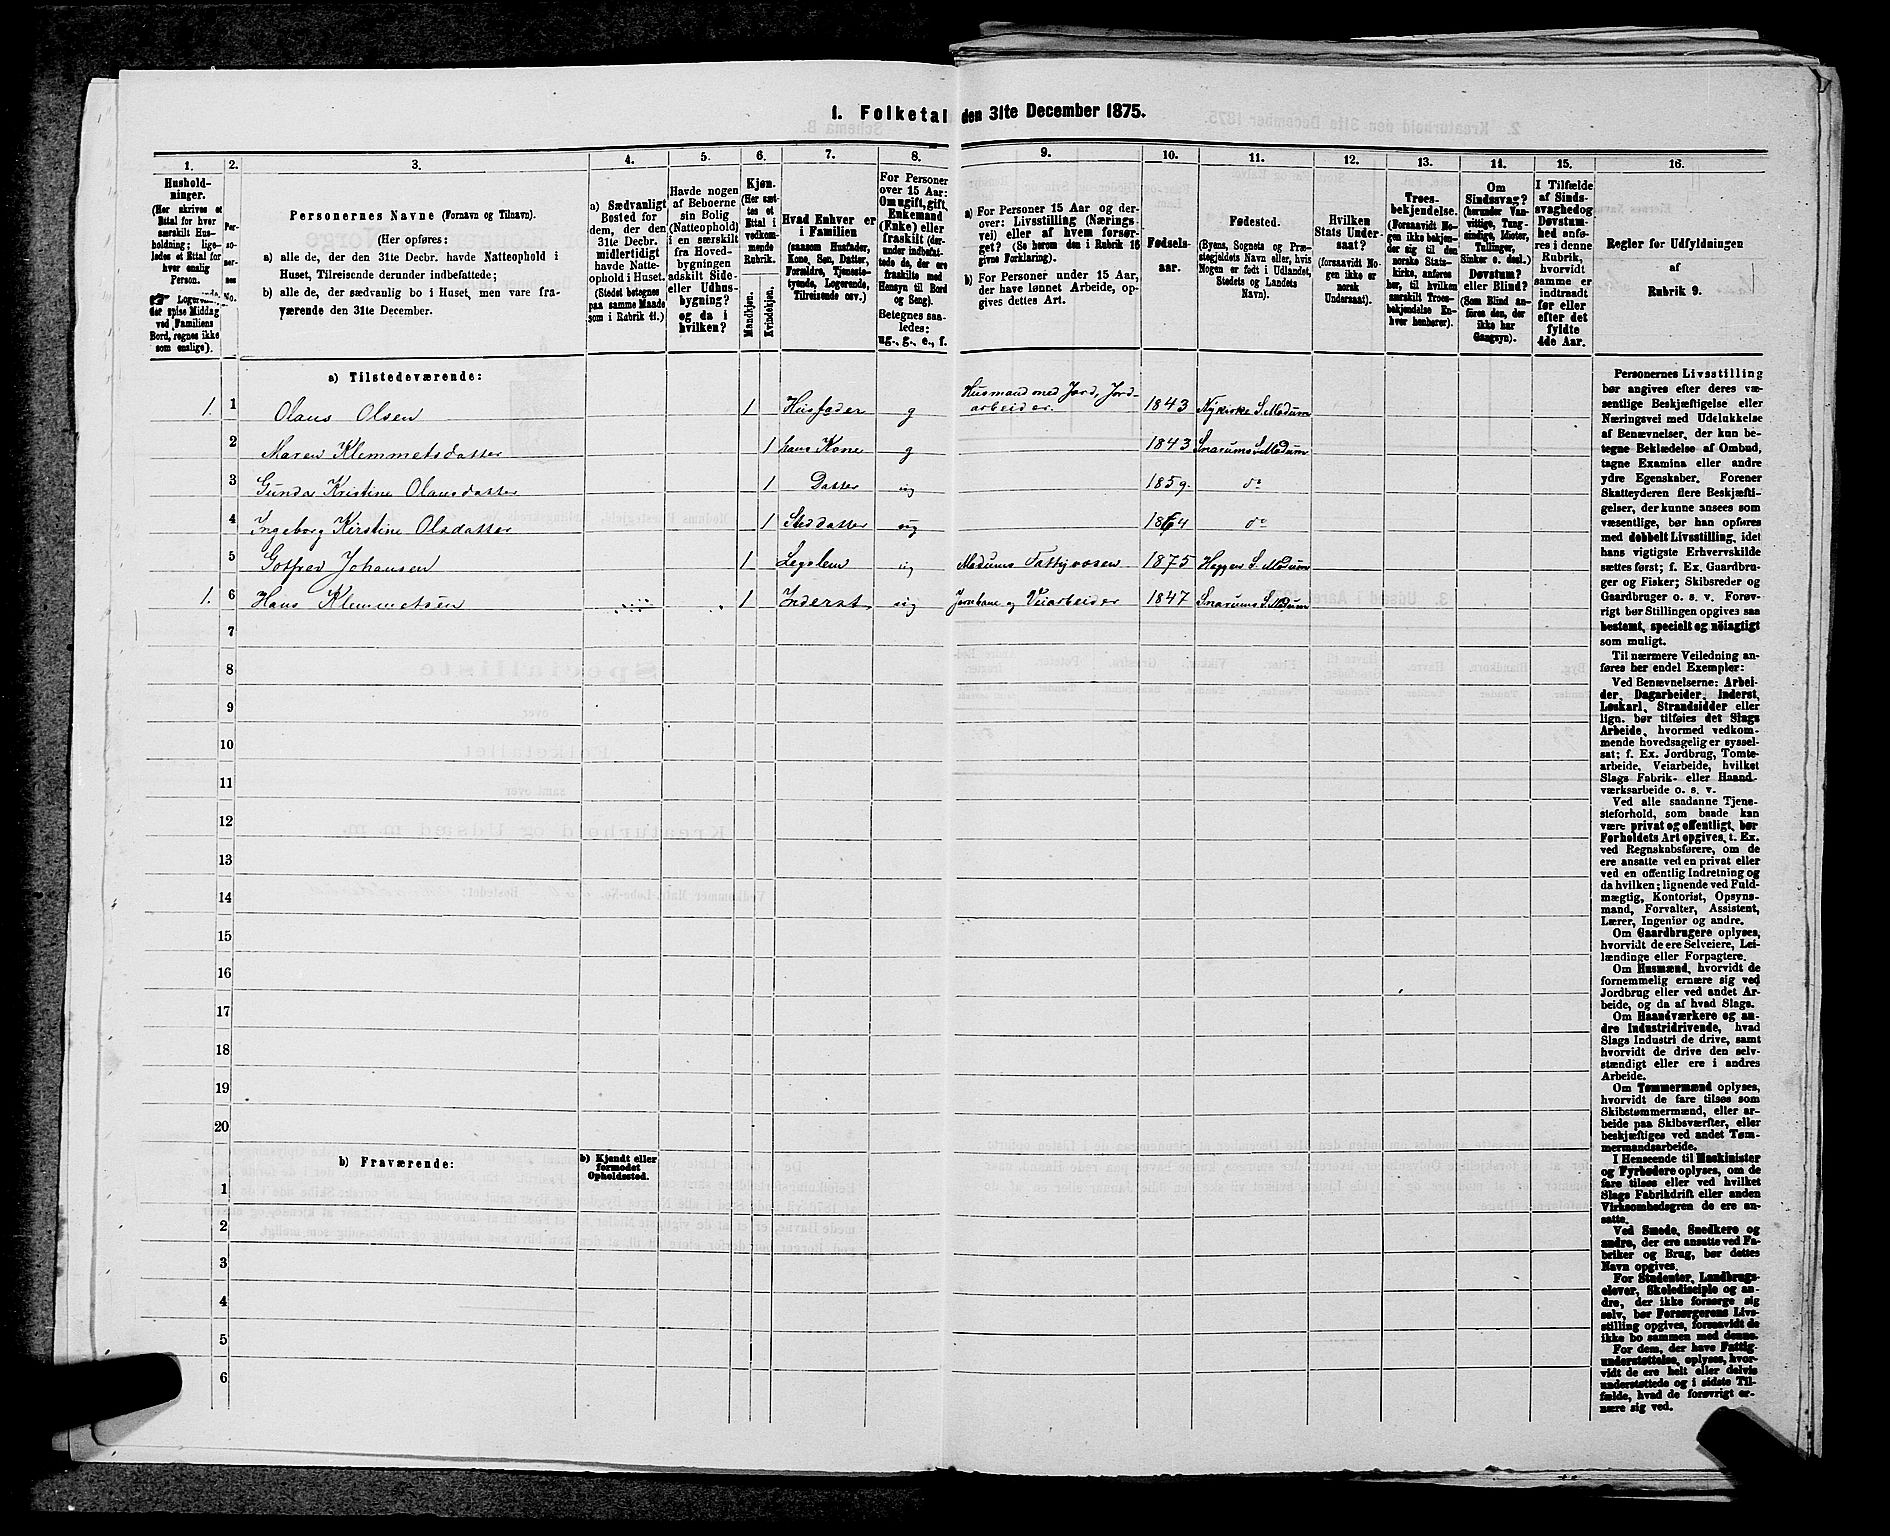 1. Folketal den 31te December 1875.
1. 2. 3. 4. 5. 6. 7. 8. 9. 10. 11. 12. 13. 14. 15. 16.
Hushold-
ninger.
(Her skrives et
Ettal for hver
særskilt Hus-
holdning; lige-
ledes et Ettal for
hver enslig
Person.
Logerende,
der spise Middag
ved Familiens
Bord, regnes ikke
som enslige).
Per-
so-
ner-
nes
No.
Personernes Navne (Fornavn og Tilnavn).
(Her opføres:
a) alle de, der den 31te Decbr. havde Natteophold i
Huset, Tilreisende derunder indbefattede;
b) alle de, der sædvanlig bo i Huset, men vare fra-
værende den 31te December.
a) Sædvanligt
Bosted for
dem, der den
31te Decbr.
midlertidigt
havde Natte-
ophold i Huset.
(Stedet betegnes
paa samme Maade
som i Rubrik 11.)
Havde nogen
af Beboerne
sin Bolig
(Natteophold)
i en særskilt
fra Hoved-
bygningen
adskilt Side-
eller Udhus-
bygning?
og da i
hvilken?
Kjøn.
(Her sæt-
tes et
Ettal i
vedkom-
mende
Rubrik.
Mandkjøn.
Kvindekjøn.
Hvad Enhver er
i Familien
(saasom Husfader,
Kone, Søn, Datter,
Forældre, Tjeneste-
tyende, Logerende,
Tilreisende osv.)
For Personer
over 15 Aar:
Om ugift, gift,
Enkemand
(Enke) eller
fraskilt (der-
under indbefat-
tede de, der ere
fraskilte med
Hensyn til Bord
og Seng).
Betegnes saa-
ledes:
ug., g., e., f.
a) For Personer 15 Aar og der-
over: Livsstilling (Nærings-
vei) eller af hvem forsør-
get? (Se herom den i Rubrik 16
givne Forklaring).
b) For Personer under 15 Aar,
der have lønnet Arbeide, op-
gives dettes Art.
Fødsels-
aar.
Fødested.
(Byens, Sognets og Præ-
stegjeldets Navn eller, hvis
Nogen er født i Udlandet,
Stedets og Landets
Navn).
Hvilken
Stats Under-
saat?
(forsaavidt No-
gen ikke er
norsk
Undersaat).
Troes-
bekjendelse.
(Forsaavidt No-
gen ikke bekjen-
der sig til den
norske Stats-
kirke, anføres
her, til hvilken
særskilt Troes-
bekjendelse En-
hver henhører).
Om
Sindssvag?
(herunder Van-
vittige, Tung-
sindige, Idioter,
Tullinger,
Sinker o. desl.)
Døvstum?
eller Blind?
(Som Blind an-
føres den, der
ikke har
Gangsyn).
I Tilfælde
af Sinds-
svaghed og
Døvstum-
hed anfø-
res i denne
Rubrik,
hvorvidt
samme er
indtraadt
før eller
efter det
fyldte
4de Aar.
Regler for Udfyldningen
af
Rubrik 9.
a) Tilstedeværende:
1. 1 Olaus Olsen 1 Husfader g Husmand med Jord, Jord-
arbeider. 1843 Nykirke S. Modum
2 Maren Klemmetsdatter 1 hans Kone g 1843 Snarums S. Modum
3 Gunda Kristine Olausdatter 1 Datter ug 1859. do
4 Ingeborg Kirstine Olsdatter 1 Steddatter ug 1864 do
5 Gotfred Johansen 1 Legslem ug Modums Fattigvæsen 1875 Heggen S. Modum
1. 6 Hans Klemmetsen 1 Inderst ug Jernbane og Veiarbeider 1847 Snarums S. Modum
7
8
9
10
11
12
13
14
15
16
17
18
19
20
b) Fraværende:
b) Kjendt eller
formodet
Opholdssted.
1
2
3
4
5
6
Personernes Livsstilling
bør angives efter deres væ-
sentlige Beskjæftigelse eller
Næringsvei med Udelukkelse
af Benævnelser, der kun be-
tegne Beklædelse af Ombud,
tagne Examina eller andre
ydre Egenskaber. Forener
Skatteyderen flere Beskjæfti-
gelser, der kunne ansees som
væsentlige, bør han opføres
med dobbelt Livsstilling, idet
hans vigtigste Erhvervskilde
sættes først; f. Ex. Gaardbru-
ger og Fisker; Skibsreder og
Gaardbruger o. s. v. Forøv-
rigt bør Stillingen opgives saa
bestemt, specielt og nøiagtigt
som muligt.
Til nærmere Veiledning an-
føres her endel Exempler:
Ved Benævnelserne: Arbei-
der, Dagarbeider, Inderst,
Løskarl, Strandsidder eller
lign. bør tilføies det Slags
Arbeide, hvormed vedkom-
mende hovedsagelig er syssel-
sat; f. Ex. Jordbrug, Tomte-
arbeide, Veiarbeide, hvilket
Slags Fabrik- eller Haand-
værksarbeide o. s. v.
Ved alle saadanne Tjene-
steforhold, som baade kan
være privat og offentligt, bør
Forholdets Art opgives, t. Ex.
ved Regnskabsførere, om de
ere ansatte ved en privat eller
ved en offentlig Indretning og
da hvilken; lignende ved Fuld-
mægtig, Kontorist, Opsyns-
mand, Forvalter, Assistent,
Lærer, Ingeniør og andre.
Om Gaardbrugere oplyses,
hvorvidt de ere Selveiere, Lei-
lændinge eller Forpagtere.
Om Husmænd, hvorvidt de
fornemmelig ernære sig ved
Jordbrug eller ved andet Ar-
beide, og da af hvad Slags.
Om Haandværkere og an-
dre Industridrivende, hvad
Slags Industri de drive, samt
hvorvidt de drive den selv-
stændigt eller ere i andres
Arbeide.
Om Tømmermænd oplyses,
hvorvidt de fare tilsøs som
Skibstømmermænd, eller ar-
beide paa Skibsværfter, eller
beskjæftiges ved andet Tøm-
mermandsarbeide.
I Henseende til Maskinister
og Fyrbødere oplyses, om de
fare tilsøs eller ved hvilket
Slags Fabrikdrift eller anden
Virksomhedsgren de ere an-
satte.
Ved Smede, Snedkere og
andre, der ere ansatte ved Fa-
briker og Brug, bør dettes
Navn opgives.
For Studenter, Landbrugs-
elever, Skoledisciple og an-
dre, der ikke forsørge sig
selv, bør Forsørgerens Livs-
stilling opgives, forsaavidt de
ikke bo sammen med denne.
For dem, der have Fattig-
understøttelse, oplyses, hvor-
vidt de ere helt eller delvis
understøttede og i sidste Til-
fælde, hvad de forøvrigt er-
nære sig ved.